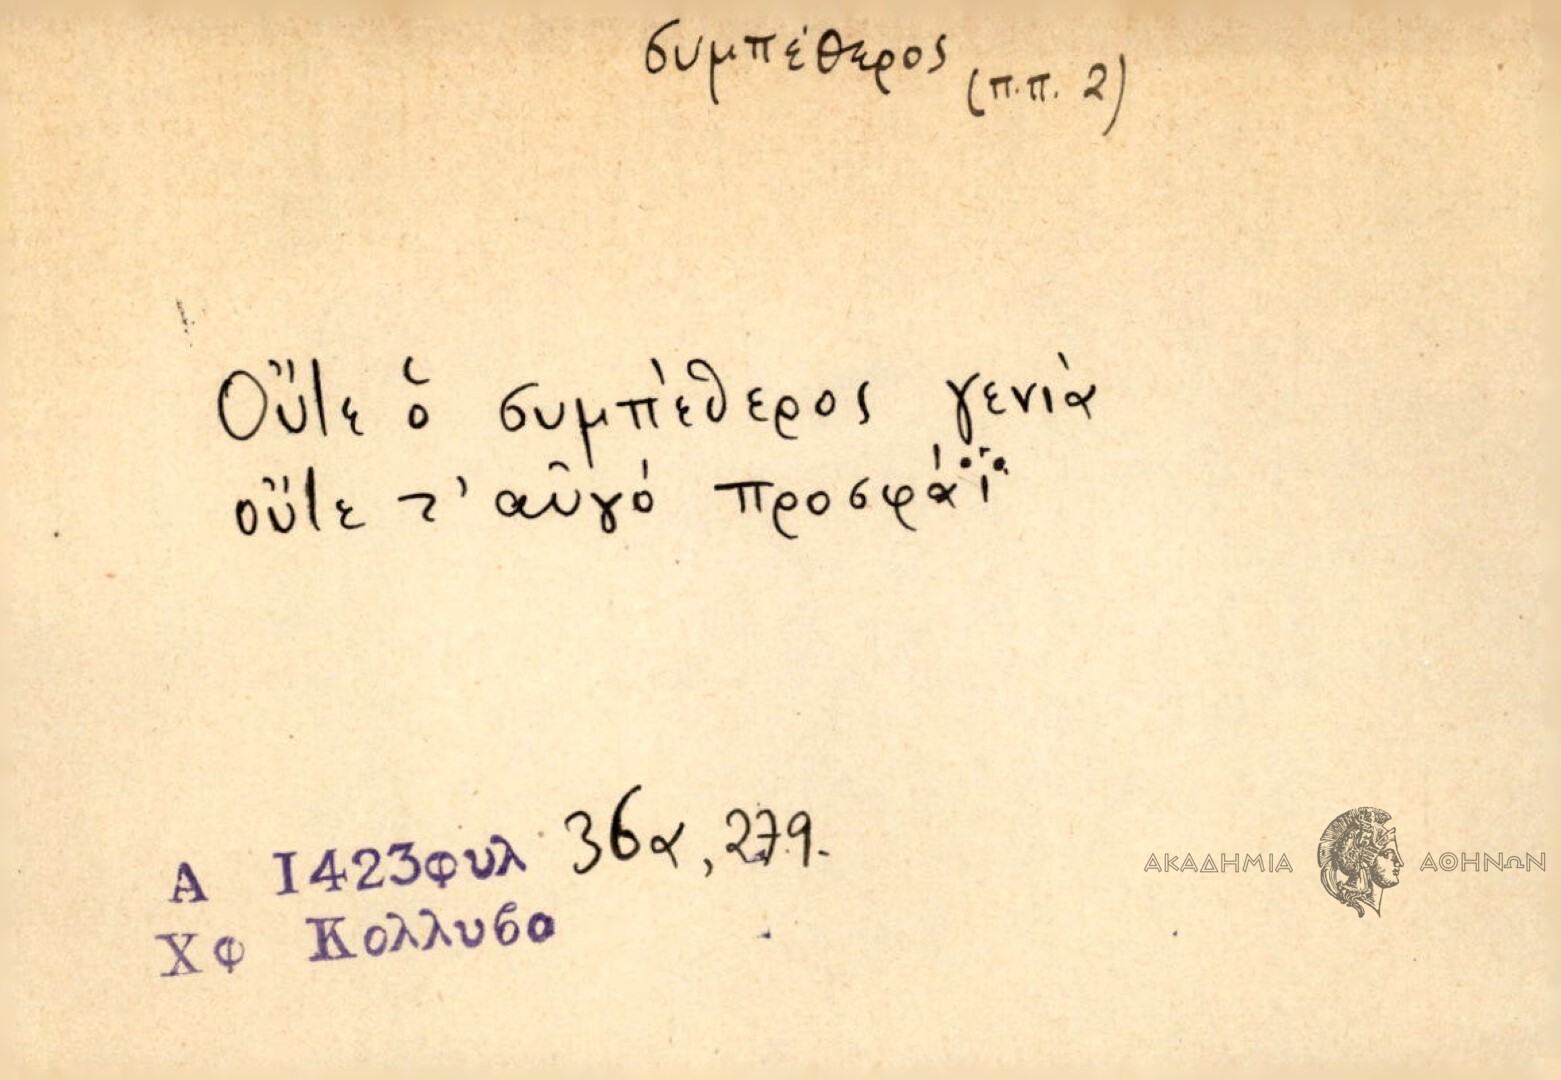 συμπέθερος (π.π. 2)
Οὔτε ὁ συμπέθερος γενιὰ
οὔτε τ' αὐγό προσφάϊ
Α 1423φυλ 36α, 279.
Χφ Κολλυβο
ΑΚΑΔΗΜΙΑ ΑΘΗΝΩΝ